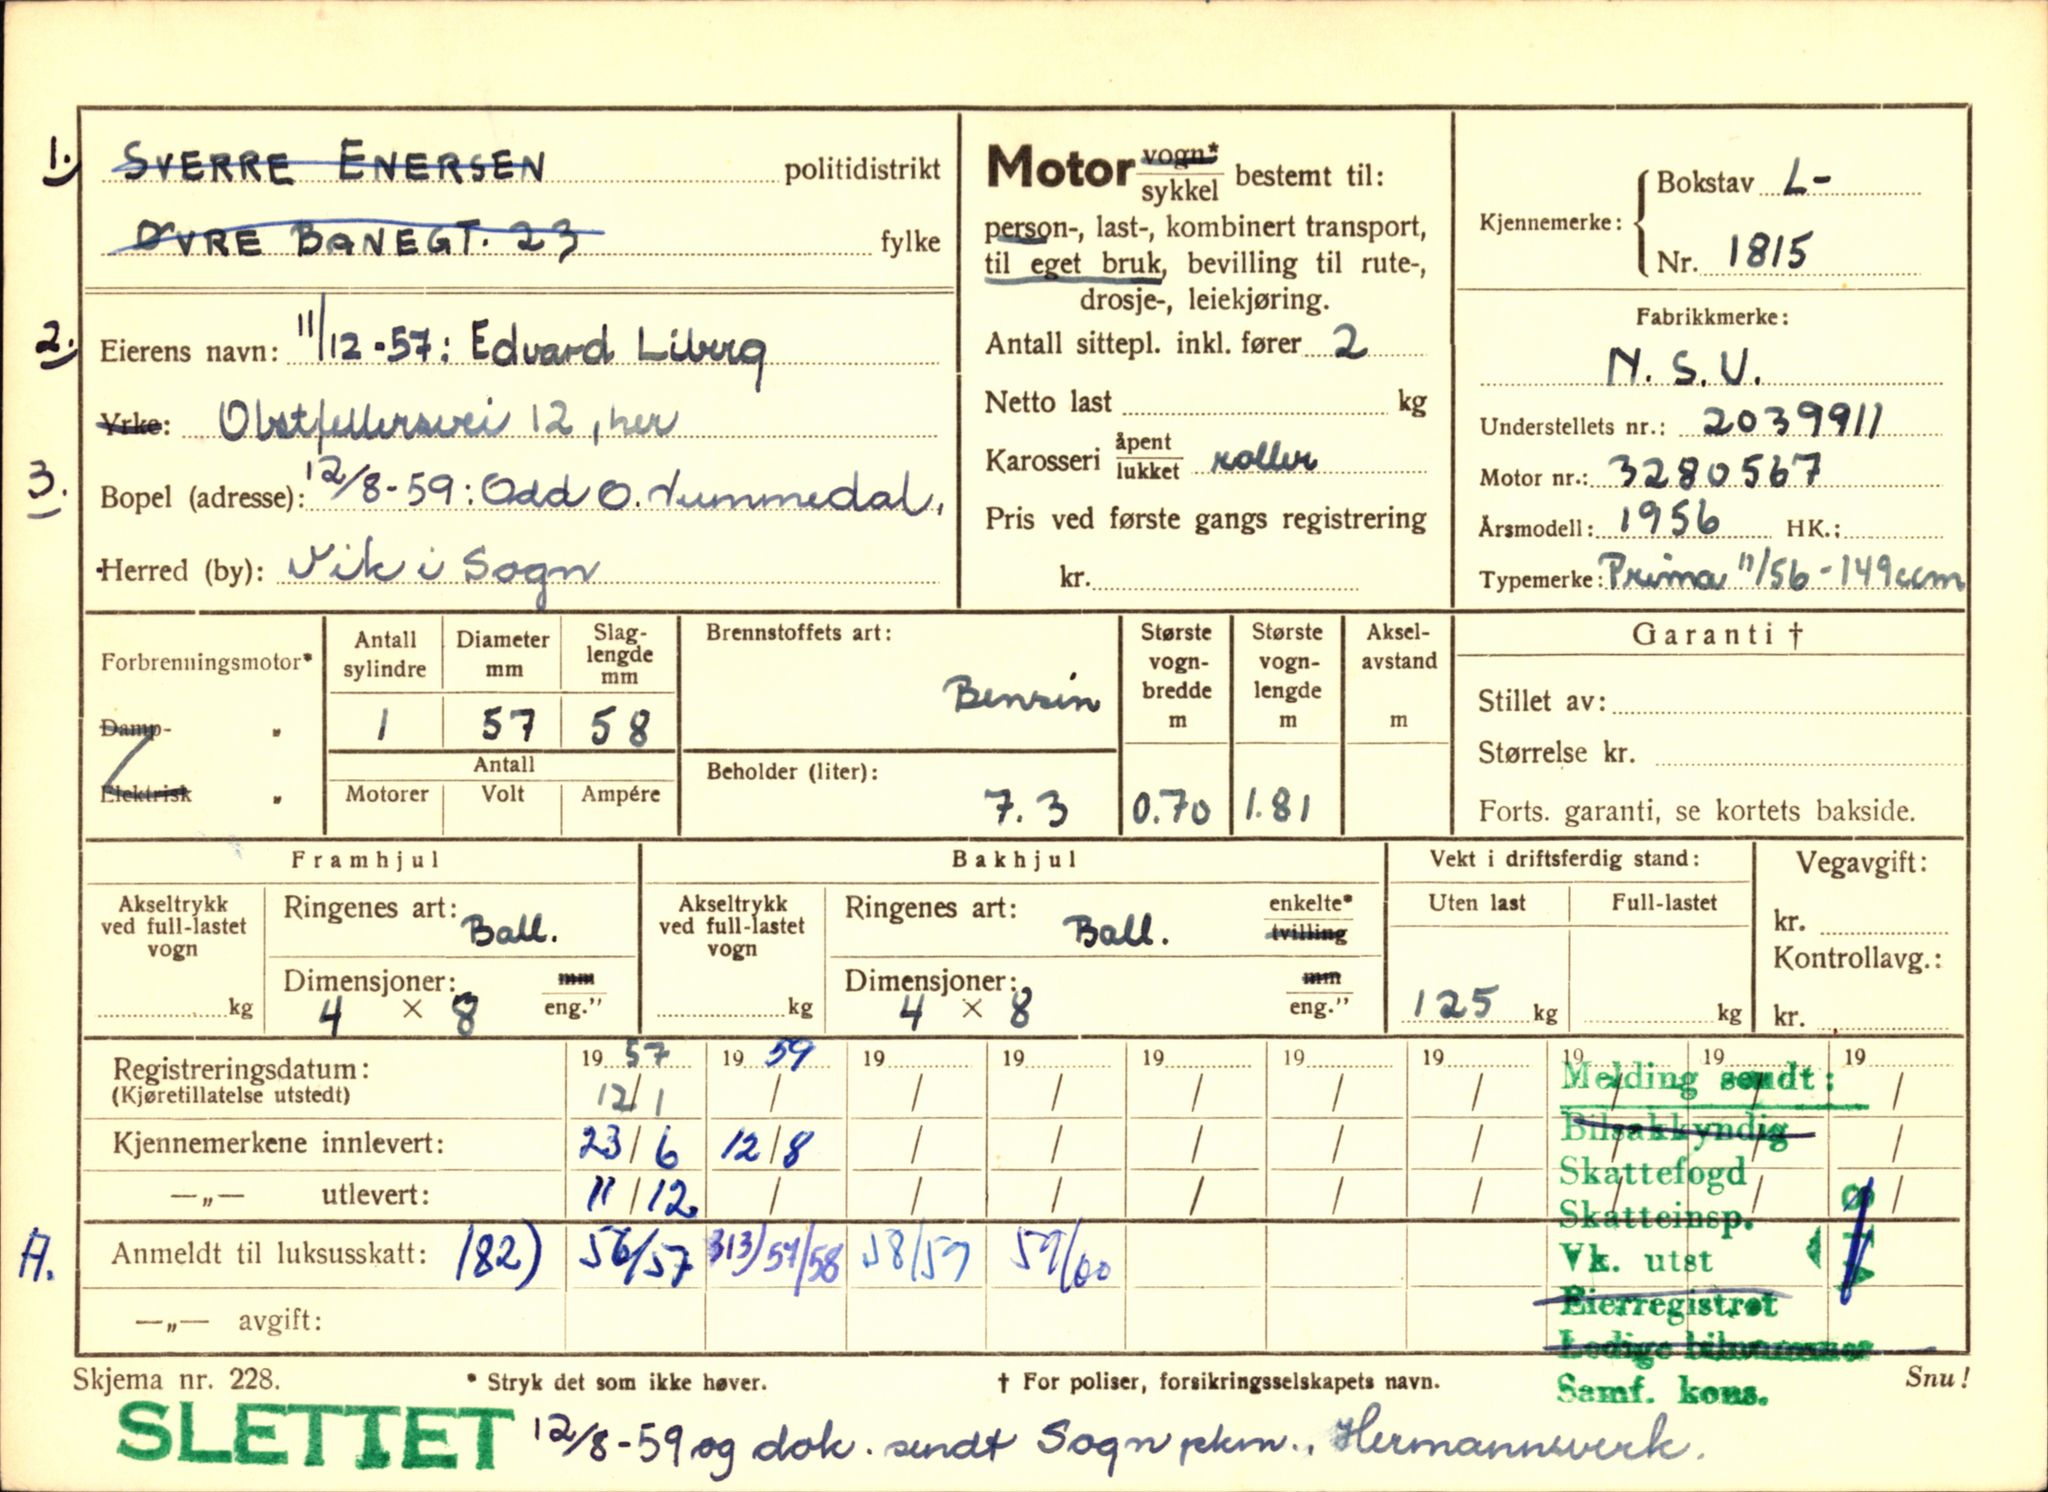 1. SVERRE ENERSEN politidistrikt
ØVRE BANEGT. 23 fylke
2. Eierens navn: 11/12-57: Edvard Liberg
Yrke: Obstfeldersvei 12, her
3. Bopel (adresse): 12/8-59: Odd O. Nummedal,
Herred (by): Vik i Sogn
Motor vogn* / sykkel bestemt til:
person-, last-, kombinert transport,
til eget bruk, bevilling til rute-,
drosje-, leiekjøring.
Antall sittepl. inkl. fører 2
Netto last kg
Karosseri åpent / lukket roller
Pris ved første gangs registrering
kr.
Kjennemerke: Bokstav L-
Nr. 1815
Fabrikkmerke:
N.S.U.
Understellets nr.: 2039911
Motor nr.: 3280567
Årsmodell: 1956 HK.:
Typemerke: Prima 11/56 - 149 ccm
Forbrenningsmotor*
Damp- "
Elektrisk "
Antall sylindre
Diameter mm
Slag-lengde mm
1 57 58
Antall
Motorer Volt Ampére
Brennstoffets art:
Bensin
Beholder (liter):
7.3
Største vogn-bredde m
0.70
Største vogn-lengde m
1.81
Aksel-avstand m
Garanti †
Stillet av:
Størrelse kr.
Forts. garanti, se kortets bakside.
Framhjul
Akseltrykk ved full-lastet vogn
kg
Ringenes art: Ball.
Dimensjoner: mm / eng."
4 × 8
Bakhjul
Akseltrykk ved full-lastet vogn
kg
Ringenes art: Ball. enkelte* / tvilling
Dimensjoner: mm / eng."
4 × 8
Vekt i driftsferdig stand:
Uten last Full-lastet
125 kg kg
Vegavgift:
kr.
Kontrollavg.:
kr.
Registreringsdatum: 19 57 19 59 19 19 19 19 19 19 19 19
(Kjøretillatelse utstedt) 12/1 / / / / / / / / /
Kjennemerkene innlevert: 23/6 12/8 / / / / / / /
—„— utlevert: 11/12 / / / / / / / / /
A. Anmeldt til luksusskatt: 182) 56/57 313) 57/58 58/59 59/60
—„— avgift:
Melding sendt:
Bilsakkyndig
Skattefogd
Skatteinsp.
Vk. utst
Eierregistret
Ledige bilnummer
Samf. kons.
Skjema nr. 228. * Stryk det som ikke høver. † For poliser, forsikringsselskapets navn. Snu!
SLETTET 12/8-59 og dok. sendt Sogn pkm., Hermannsverk.